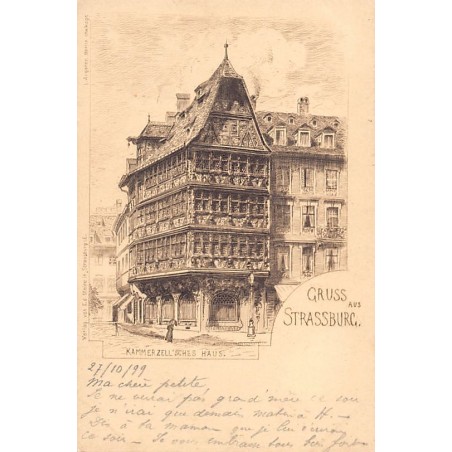 GRUSS
AUS
STRASSBURG.
KAMMERZELL'SCHES HAUS.
27/10/99
Ma chère petite,
Je ne verrai pas grand'mère ce soir
je n'irai que demain matin à H. —
Dis à ta maman que je lui écrirai
ce soir — Je vous embrasse tous bien fort
Verlag von